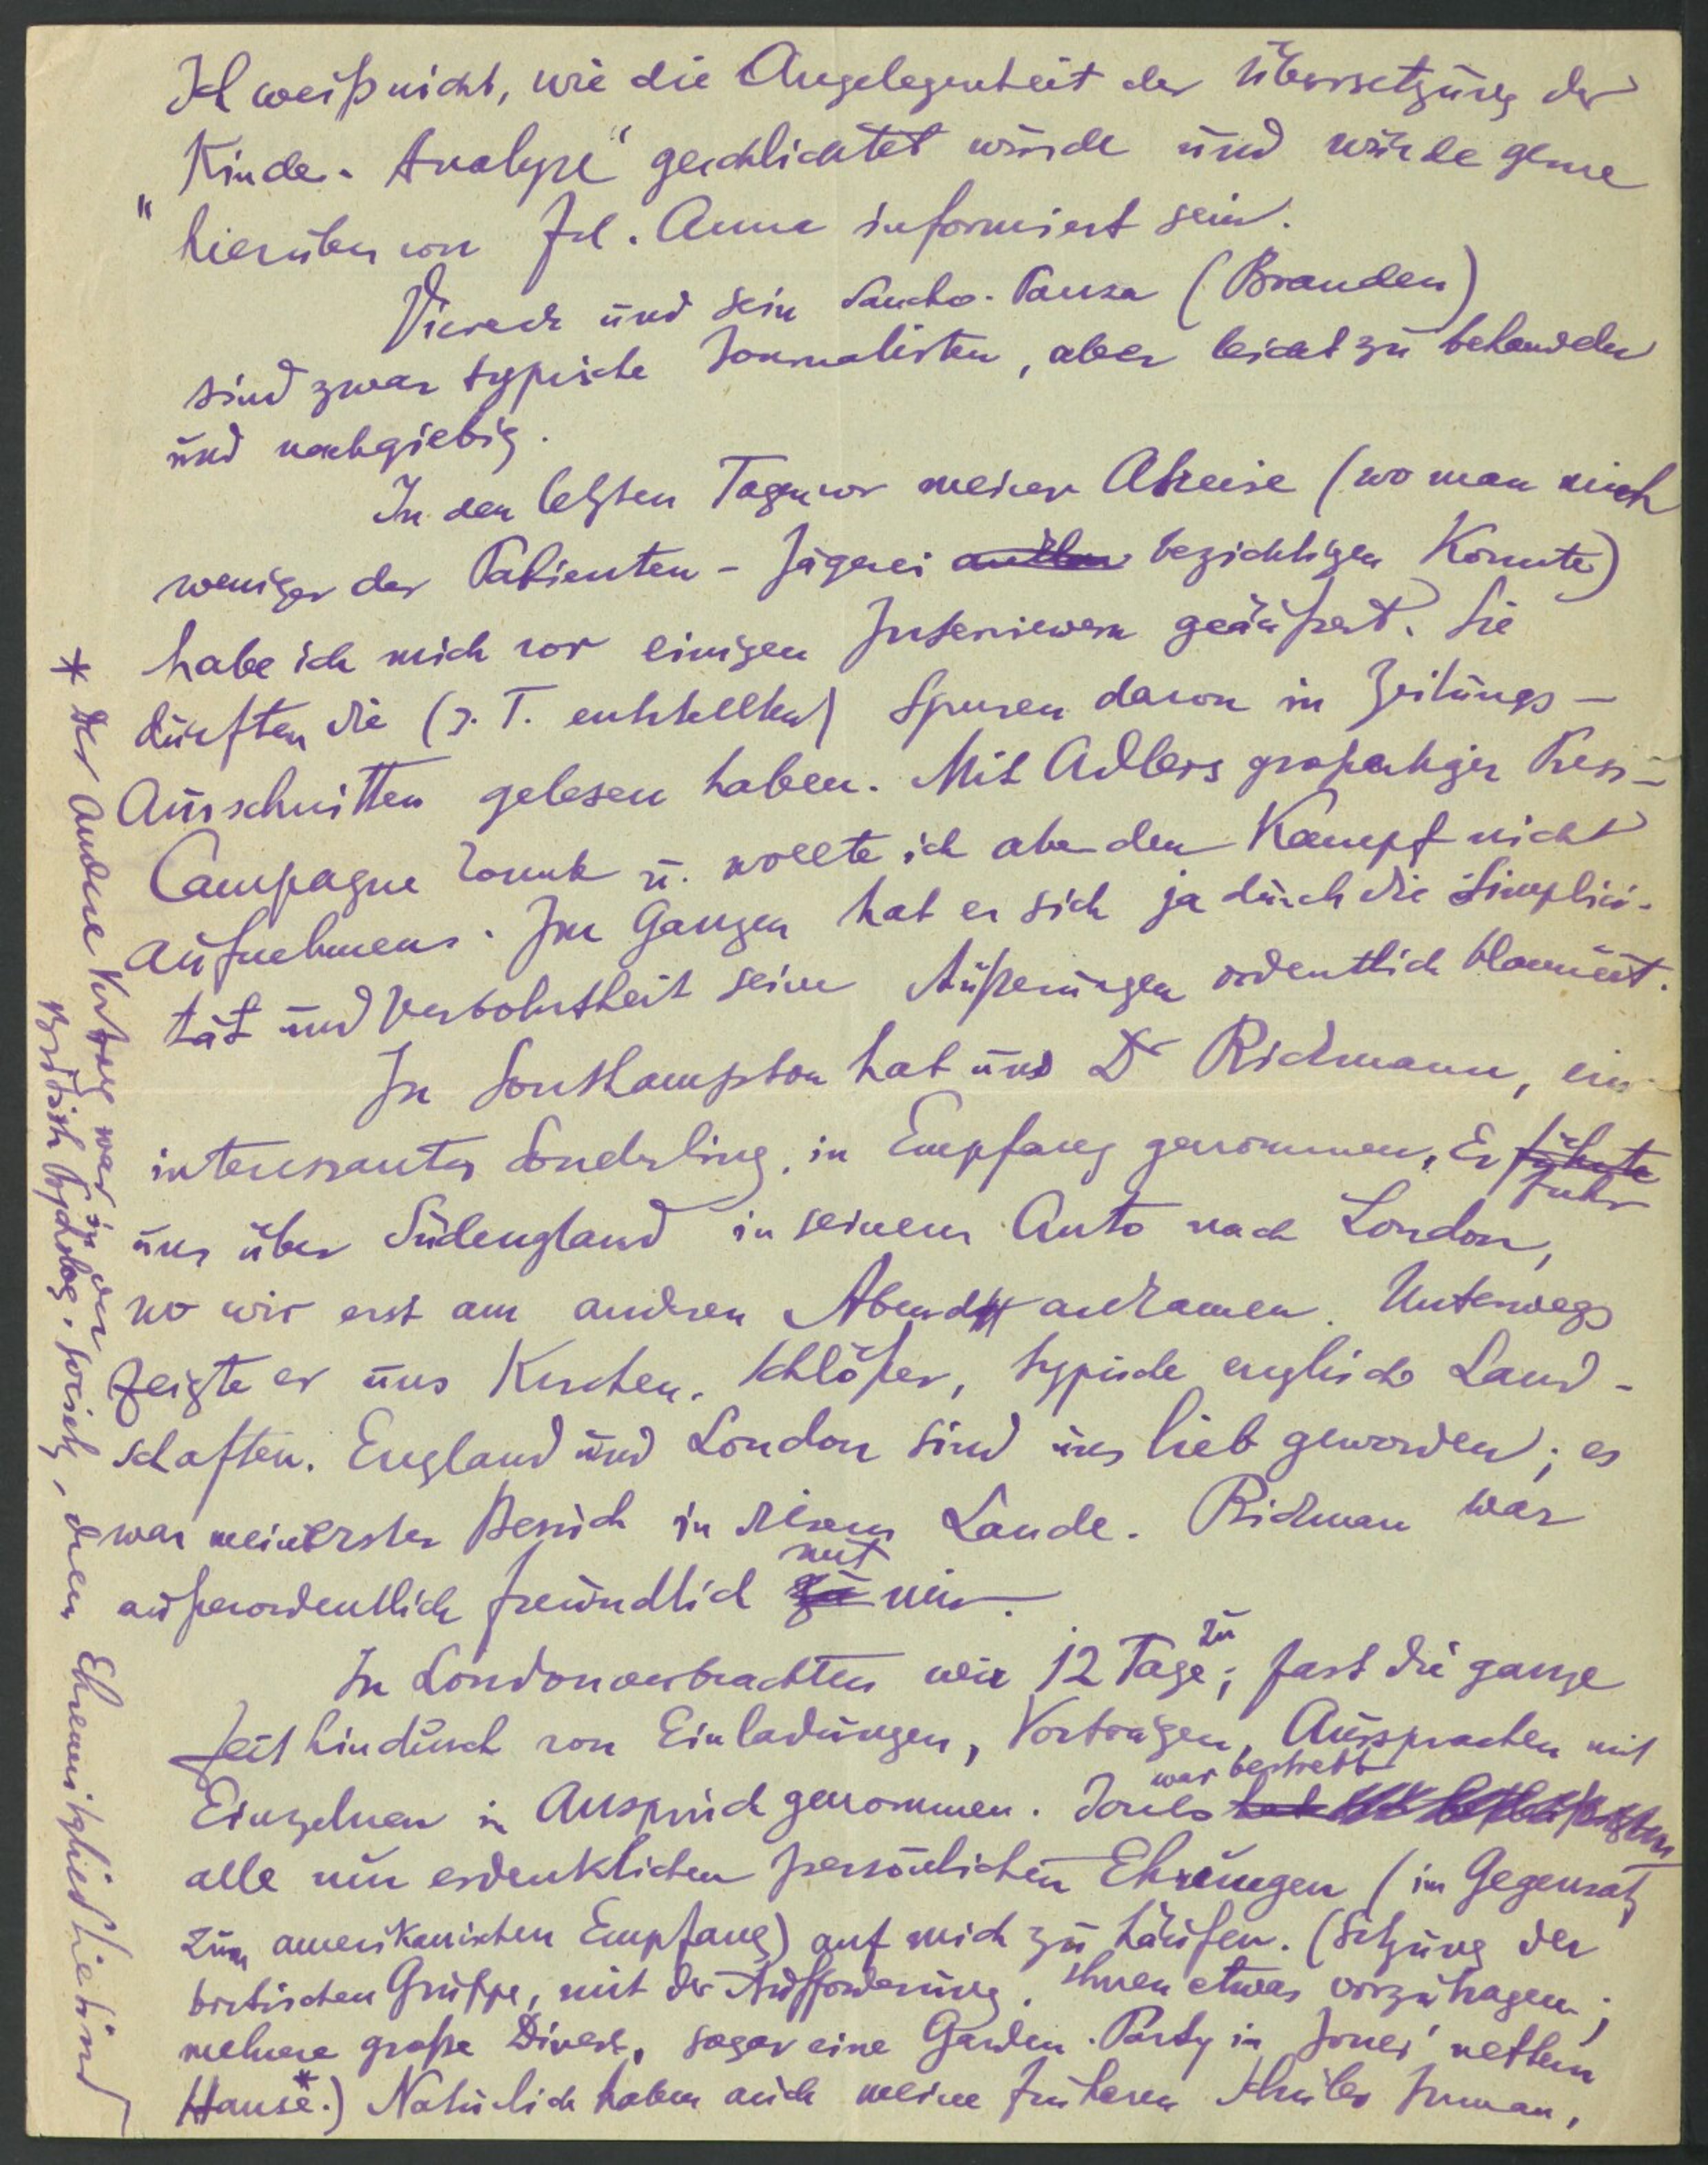 Ich weiß nicht, wie die Angelegenheit der Übersetzung der
„Kinder-Analyse“ geschlichtet wurde und würde gerne
hierüber von Frl. Anna informiert sein.
Viereck und sein Sancho-Pansa (Branden)
sind zwar typische Journalisten, aber leicht zu behandeln
und nachgiebig.
In den letzten Tagen vor meiner Abreise (wo man mich
weniger der Patienten-Jägerei bezichtigen konnte)
habe ich mich vor einigen Interviewern geäußert. Sie
dürften die (z. T. entstellten) Spuren davon in Zeitungs-
Ausschnitten gelesen haben. Mit Adlers großartiger Press-
Campagne konnte u. wollte ich aber den Kampf nicht
aufnehmen. Im Ganzen hat er sich ja durch die Simplici-
tät und Verbohrtheit seiner Äußerungen ordentlich blamiert.
In Southampton hat uns Dr Rickmann, ein
interessanter Sonderling, in Empfang genommen, Er führte fuhr
uns über Südengland in seinem Auto nach London,
wo wir erst am andren Abend ankamen. Unterwegs
zeigte er uns Kirchen, Schlößer, typische englische Land-
schaften. England und London sind uns lieb geworden; es
war mein erster Besuch in diesem Lande. Rickman war
außerordentlich freundlich zu mit mir.
In London verbrachten wir 12 Tage zu; fast die ganze
Zeit hindurch von Einladungen, Vorträgen, Aussprachen mit
Einzelnen in Anspruch genommen. Jones war bestrebt
alle nur erdenklichen persönlichen Ehrungen (im Gegensatz
zum amerikanischen Empfang) auf mich zu häufen. (Sitzung der
britischen Gruppe, mit der Aufforderung, ihnen etwas vorzutragen;
mehrere große Diners, sogar eine Garden-Party in Jones' nettem
Hause*.) Natürlich haben auch meine früheren Schüler Inman,
* Der andere Vortrag war in der
British Psycholog. Society, deren Ehrenmitglied Sie sind